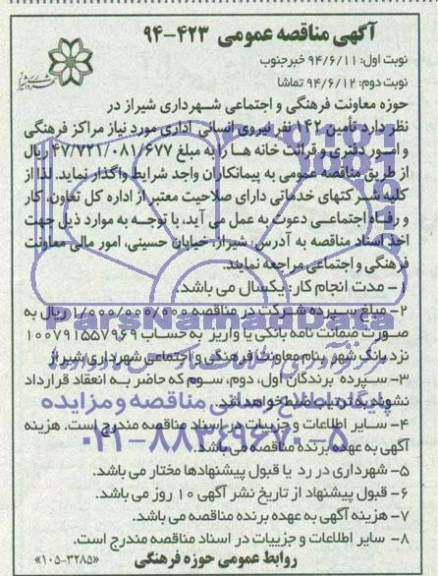 آگهی مناقصه عمومی ۴۲۳-۹۴
نوبت اول: ۹۴/۶/۱۱ خبرجنوب
نوبت دوم: ۹۴/۶/۱۲ تماشا
حوزه معاونت فرهنگی و اجتماعی شهرداری شیراز در
نظر دارد تأمین ۱۴۲ نفر نیروی انسانی اداری مورد نیاز مراکز فرهنگی
و امور دفتری و قرائت خانه ها را به مبلغ ۴۷/۷۲۱/۰۸۱/۶۷۷ ریال
از طریق مناقصه عمومی به پیمانکاران واجد شرایط واگذار نماید. لذا از
کلیه شرکتهای خدماتی دارای صلاحیت معتبر از اداره کل تعاون، کار
و رفاه اجتماعی دعوت به عمل می آید، با توجه به موارد ذیل جهت
اخذ اسناد مناقصه به آدرس: شیراز، خیابان حسینی، امور مالی معاونت
فرهنگی و اجتماعی مراجعه نمایند.
۱- مدت انجام کار: یکسال می باشد.
۲- مبلغ سپرده شرکت در مناقصه ۱/۰۰۰/۰۰۰/۰۰۰ ریال به
صورت ضمانت نامه بانکی یا واریز به حساب ۱۰۰۷۹۱۵۵۷۹۶۹
نزد بانک شهر بنام معاونت فرهنگی و اجتماعی شهرداری شیراز
۳- سپرده برندگان اول، دوم، سوم که حاضر به انعقاد قرارداد
نشوند به ترتیب ضبط خواهد شد.
۴- سایر اطلاعات و جزییات در اسناد مناقصه مندرج است. هزینه
آگهی به عهده برنده مناقصه می باشد.
۵- شهرداری در رد یا قبول پیشنهادها مختار می باشد.
۶- قبول پیشنهاد از تاریخ نشر آگهی ۱۰ روز می باشد.
۷- هزینه آگهی به عهده برنده مناقصه می باشد.
۸- سایر اطلاعات و جزییات در اسناد مناقصه مندرج است.
روابط عمومی حوزه فرهنگی
«۱۰۵-۳۲۸۵»
ParsNamadData
پایگاه اطلاع رسانی مناقصه و مزایده
۰۲۱-۸۸۳۴۹۶۷۰-۵